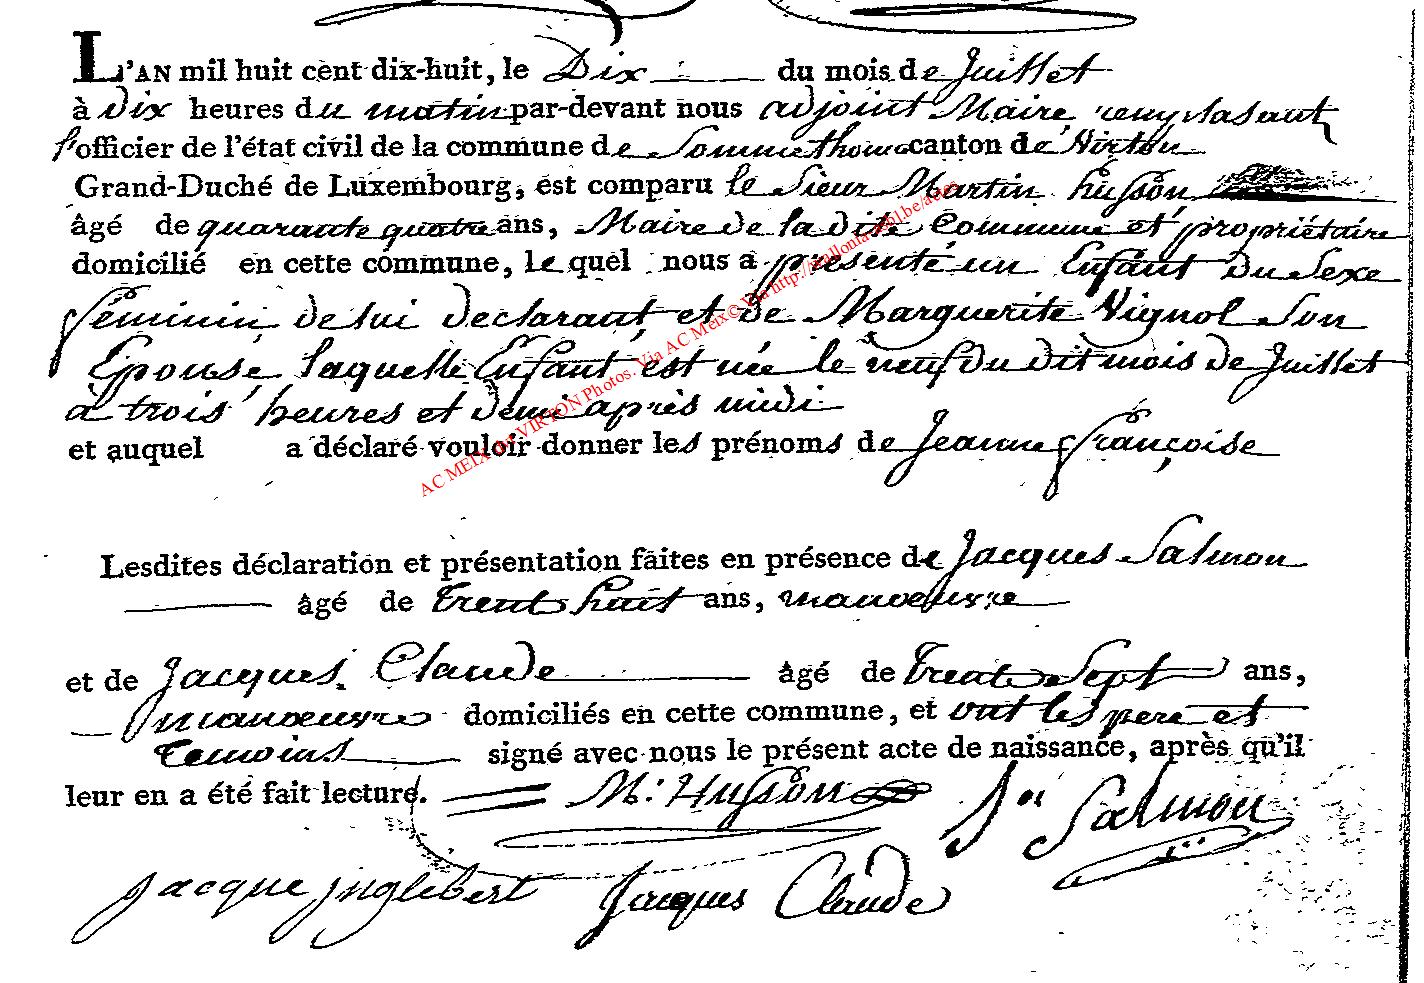 L'AN mil huit cent dix-huit, le Dix du mois de Juillet
à Dix heures du matin par-devant nous adjoint Maire remplasant
l'officier de l'état civil de la commune de Sommethonne canton de Virton
Grand-Duché de Luxembourg, est comparu le Sieur Martin husson
âgé de quarante quatre ans, Maire de la dite Commune et propriétaire
domicilié en cette commune, le quel nous a présenté un Enfant Du Sexe
féminin de lui Declarant et de Marguerite Vignol Son
Epouse laquelle Enfant est née le neuf du dit mois de Juillet
a trois heures et demi après midi
et auquel a déclaré vouloir donner les prénoms de Jeanne françoise
Lesdites déclaration et présentation faites en présence de Jacques Salmon
âgé de Trent huit ans, manoeuvre
et de Jacques Claude âgé de Trente Sept ans,
manoeuvre domiciliés en cette commune, et ont les pere et
Temoins signé avec nous le présent acte de naissance, après qu'il
leur en a été fait lecture. M: Husson Salmon
Jacque Jnglebert Jacques Claude
AC MEIX dvt VIRTON Photos. Via AC Meix© Via